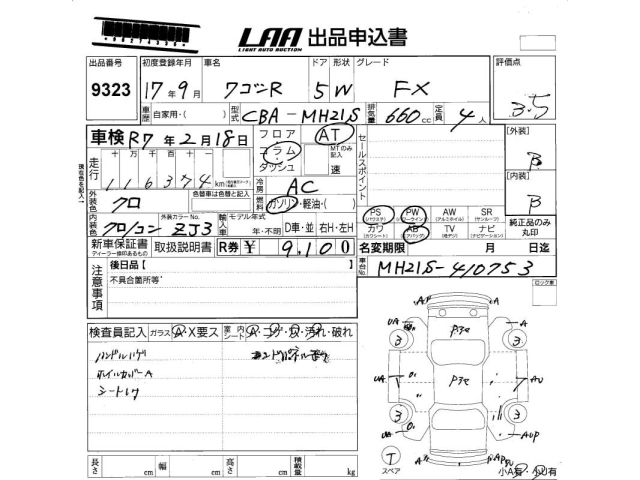 LAA 出品申込書
LIGHT AUTO AUCTION
出品番号 初度登録年月 車名 ドア 形状 グレード 評価点
9323 17年9月 ワゴンR 5 W FX 3.5
車歴 自家用・( ) 型式 CBA-MH21S 排気量 660cc 定員 4人
車検 R7年2月18日 フロア コラム ダッシュ AT MTのみ記入 速 セールスポイント
[外装] B
[内装] B
走行 十万 万 千 百 十 116374km
冷房 AC
外装色 クロ 色替車は色替と記入
燃料 ガソリン・軽油・( )
PS (パワステ) PW (パワーウインド) AW (アルミホイル) SR (サンルーフ)
カワ (カワシート) AB (エアバッグ) TV (地デジ) ナビ (ナビゲーション)
純正品のみ丸印
内装色 クロ/コン 外装カラーNo. ZJ3 輸入車 モデル年式 年・不明 D車・並 右H・左H
新車保証書 ディーラー様印あるもの 取扱説明書 R券 ¥ 9,100
名変期限 月 日迄
車台No. MH21S-410753
現在色を記入
注意事項 後日品[ ]
不具合箇所等
ロック車
検査員記入 ガラス A・X要ス 室内シート A・コゲ・穴・汚れ・破れ
ハンドルハゲ
ホイルカバーA
シートレケ
長さ cm 幅 cm 高さ cm 積載量 kg
A A
UA A
3 3
Pヌセ
Pヌセ
UA AU
3 3
UA AUP
T
スペア
A
小A有・小U有